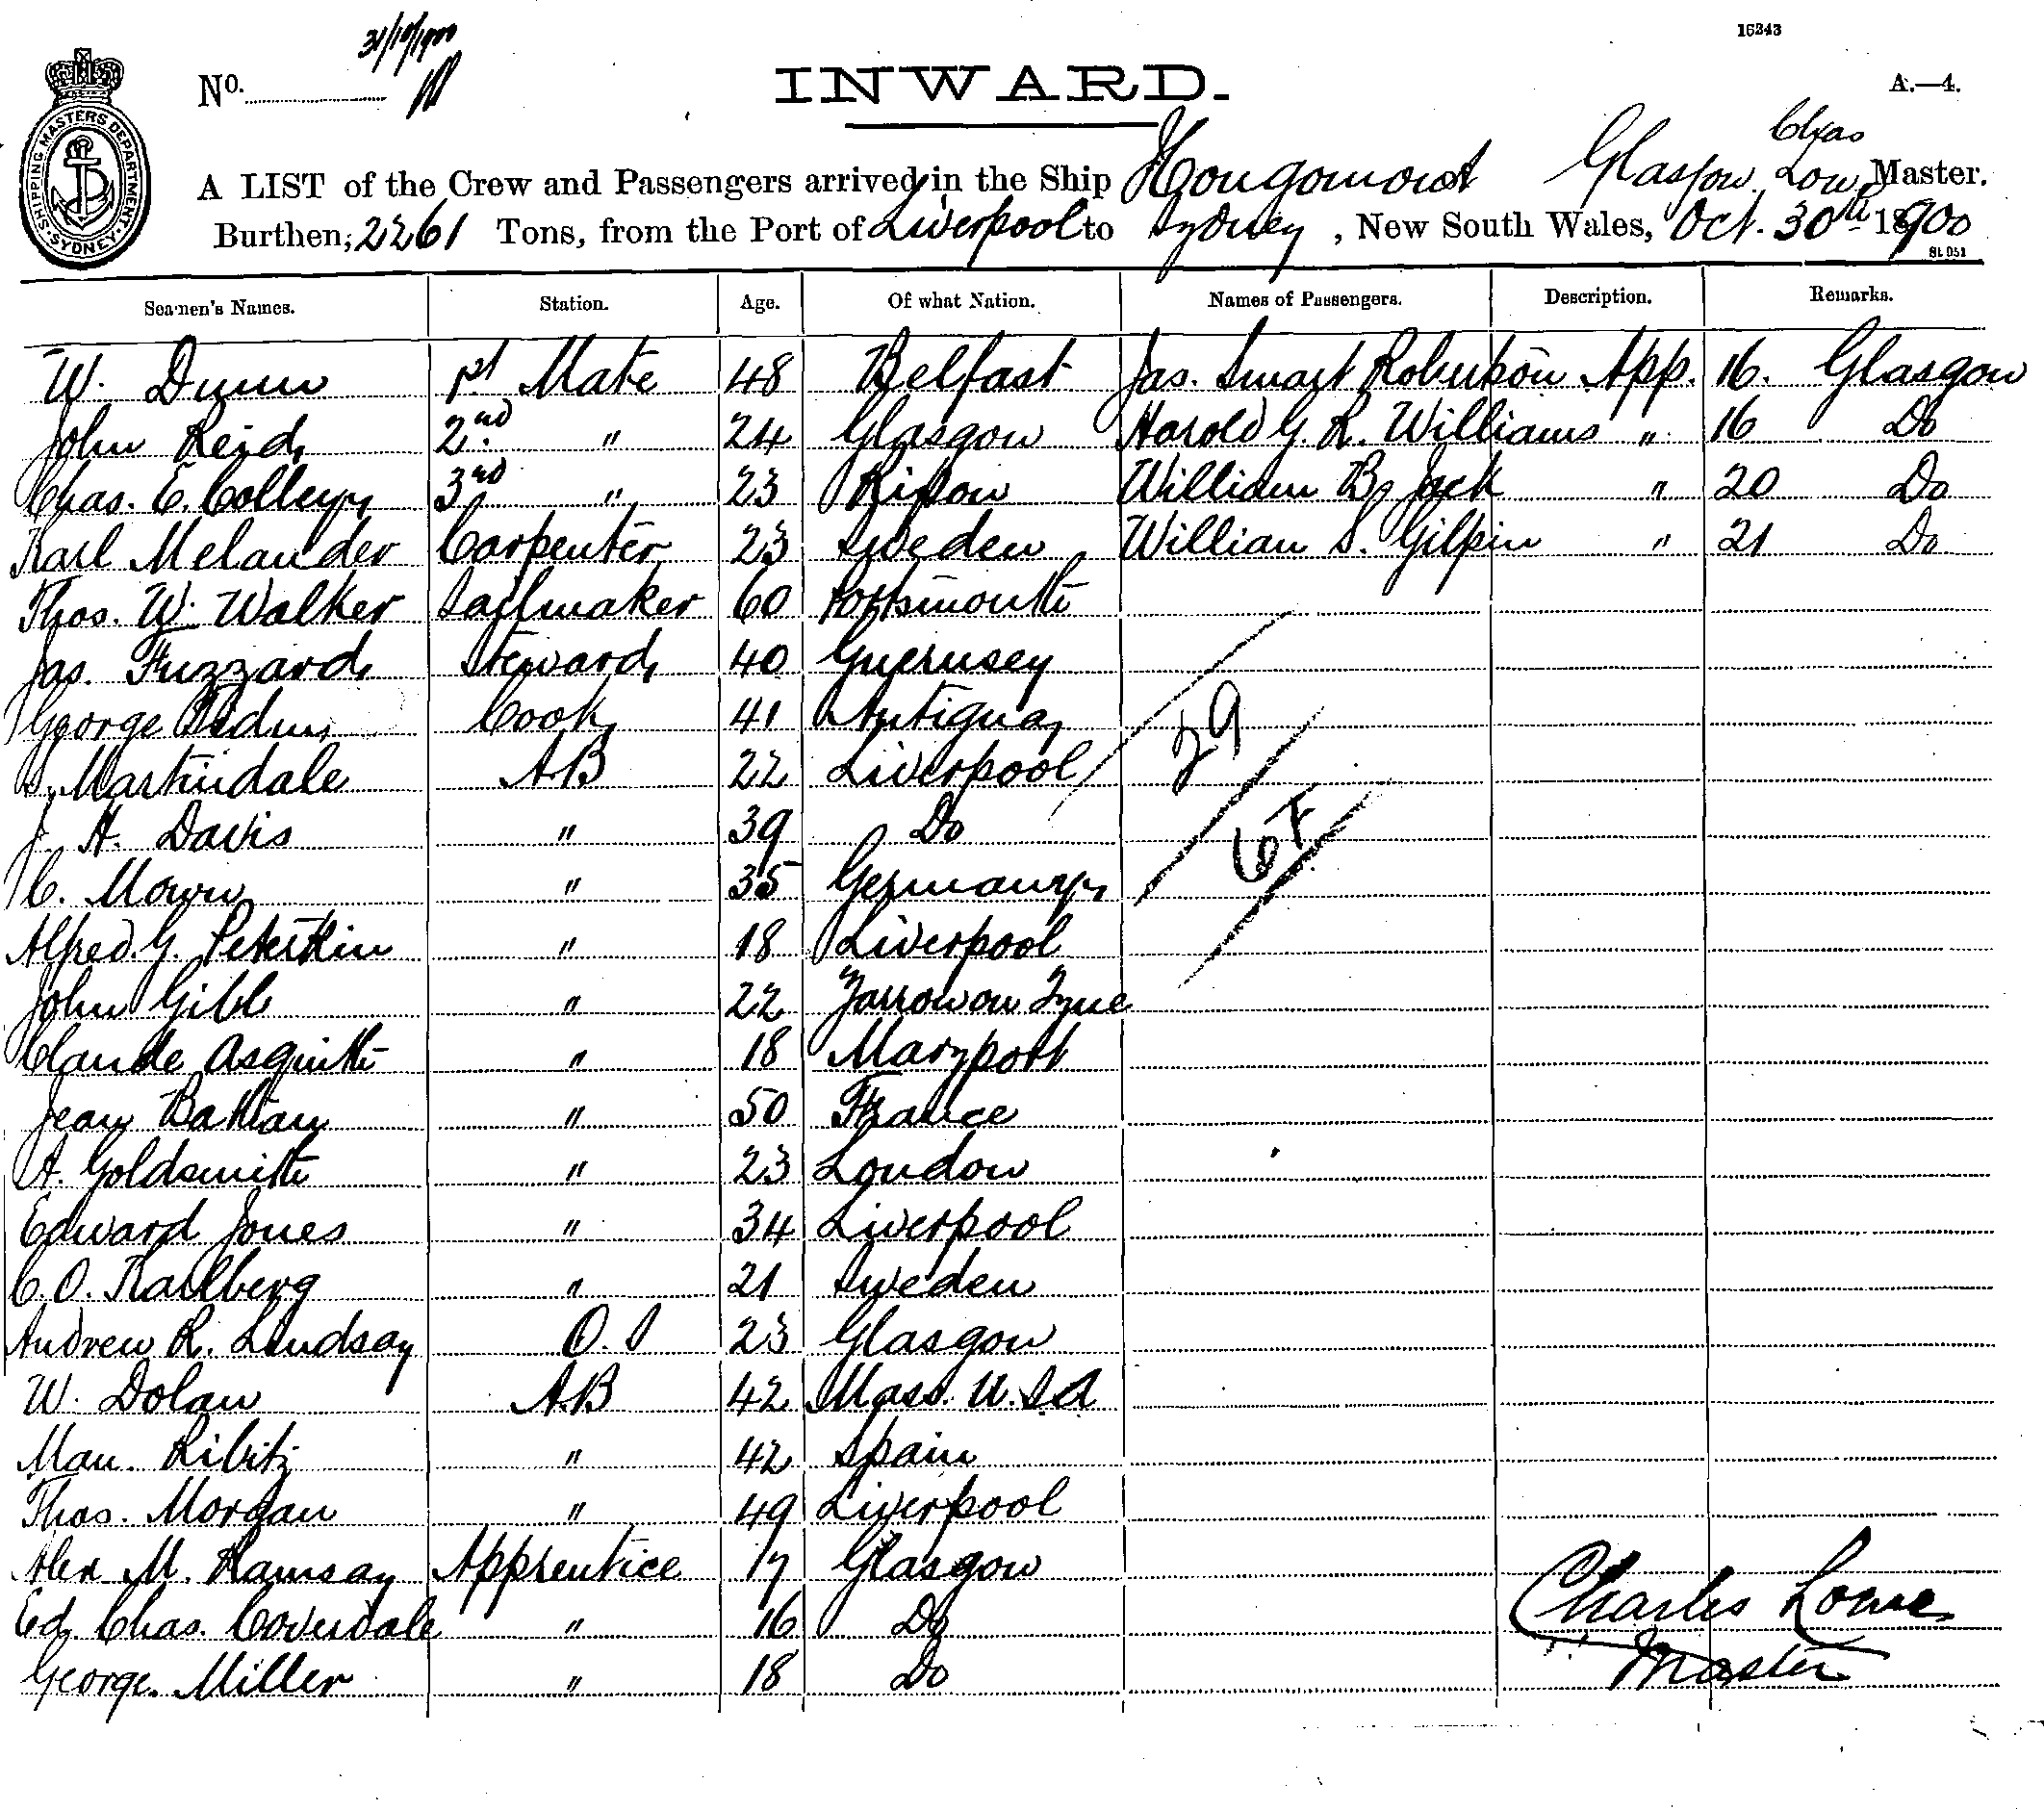 31/10/1900
16343
No.
INWARD.
A.—4.
SHIPPING MASTERS DEPARTMENT SYDNEY
Chas
A LIST of the Crew and Passengers arrived in the Ship Hougomont Glasgow Low Master.
Burthen, 2261 Tons, from the Port of Liverpool to Sydney, New South Wales, Oct. 30th 1900
St 951
Seamen's Names. Station. Age. Of what Nation. Names of Passengers. Description. Remarks.
W. Dunn 1st Mate 48 Belfast Jas. Smart Robertson App. 16. Glasgow
John Reid 2nd " 24 Glasgow Harold G. R. Williams " 16 Do
Chas. E. Colley 3rd " 23 Ripon William B. Jack " 20 Do
Karl Melander Carpenter 23 Sweden William S. Gilpin " 21 Do
Thos. W. Walker Sailmaker 60 Portsmouth
Jas. Fuzzard Steward 40 Guernsey
George Cook 41 Antigua
29
Martindale AB 22 Liverpool
J. H. Davis " 39 Do
67
C. Mown " 35 Germany
Alfred. G. Peterkin " 18 Liverpool
John Gibb " 22 Yarrow on Tyne
Claude Asquith " 18 Maryport
Jean " 50 France
A. Goldsmith " 23 London
Edward Jones " 34 Liverpool
C. O. Karlberg " 21 Sweden
Andrew R. Lindsay O.S 23 Glasgow
W. Dolan A.B 42 Mass. U.S.A
Man. Ribitz " 42 Spain
Thos. Morgan " 49 Liverpool
Alex M. Ramsay Apprentice 17 Glasgow
Ed. Chas. Coverdale " 16 Do
Charles Lowe
George Miller " 18 Do
Master